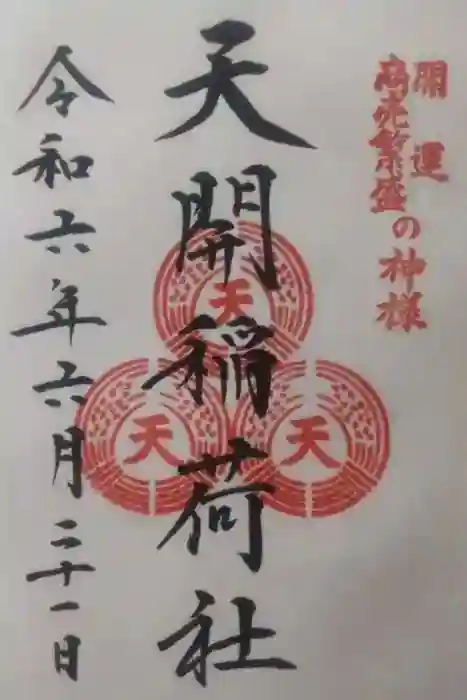 開運
商売繁盛の神様
天開稲荷社
天
天
天
令和六年六月二十一日